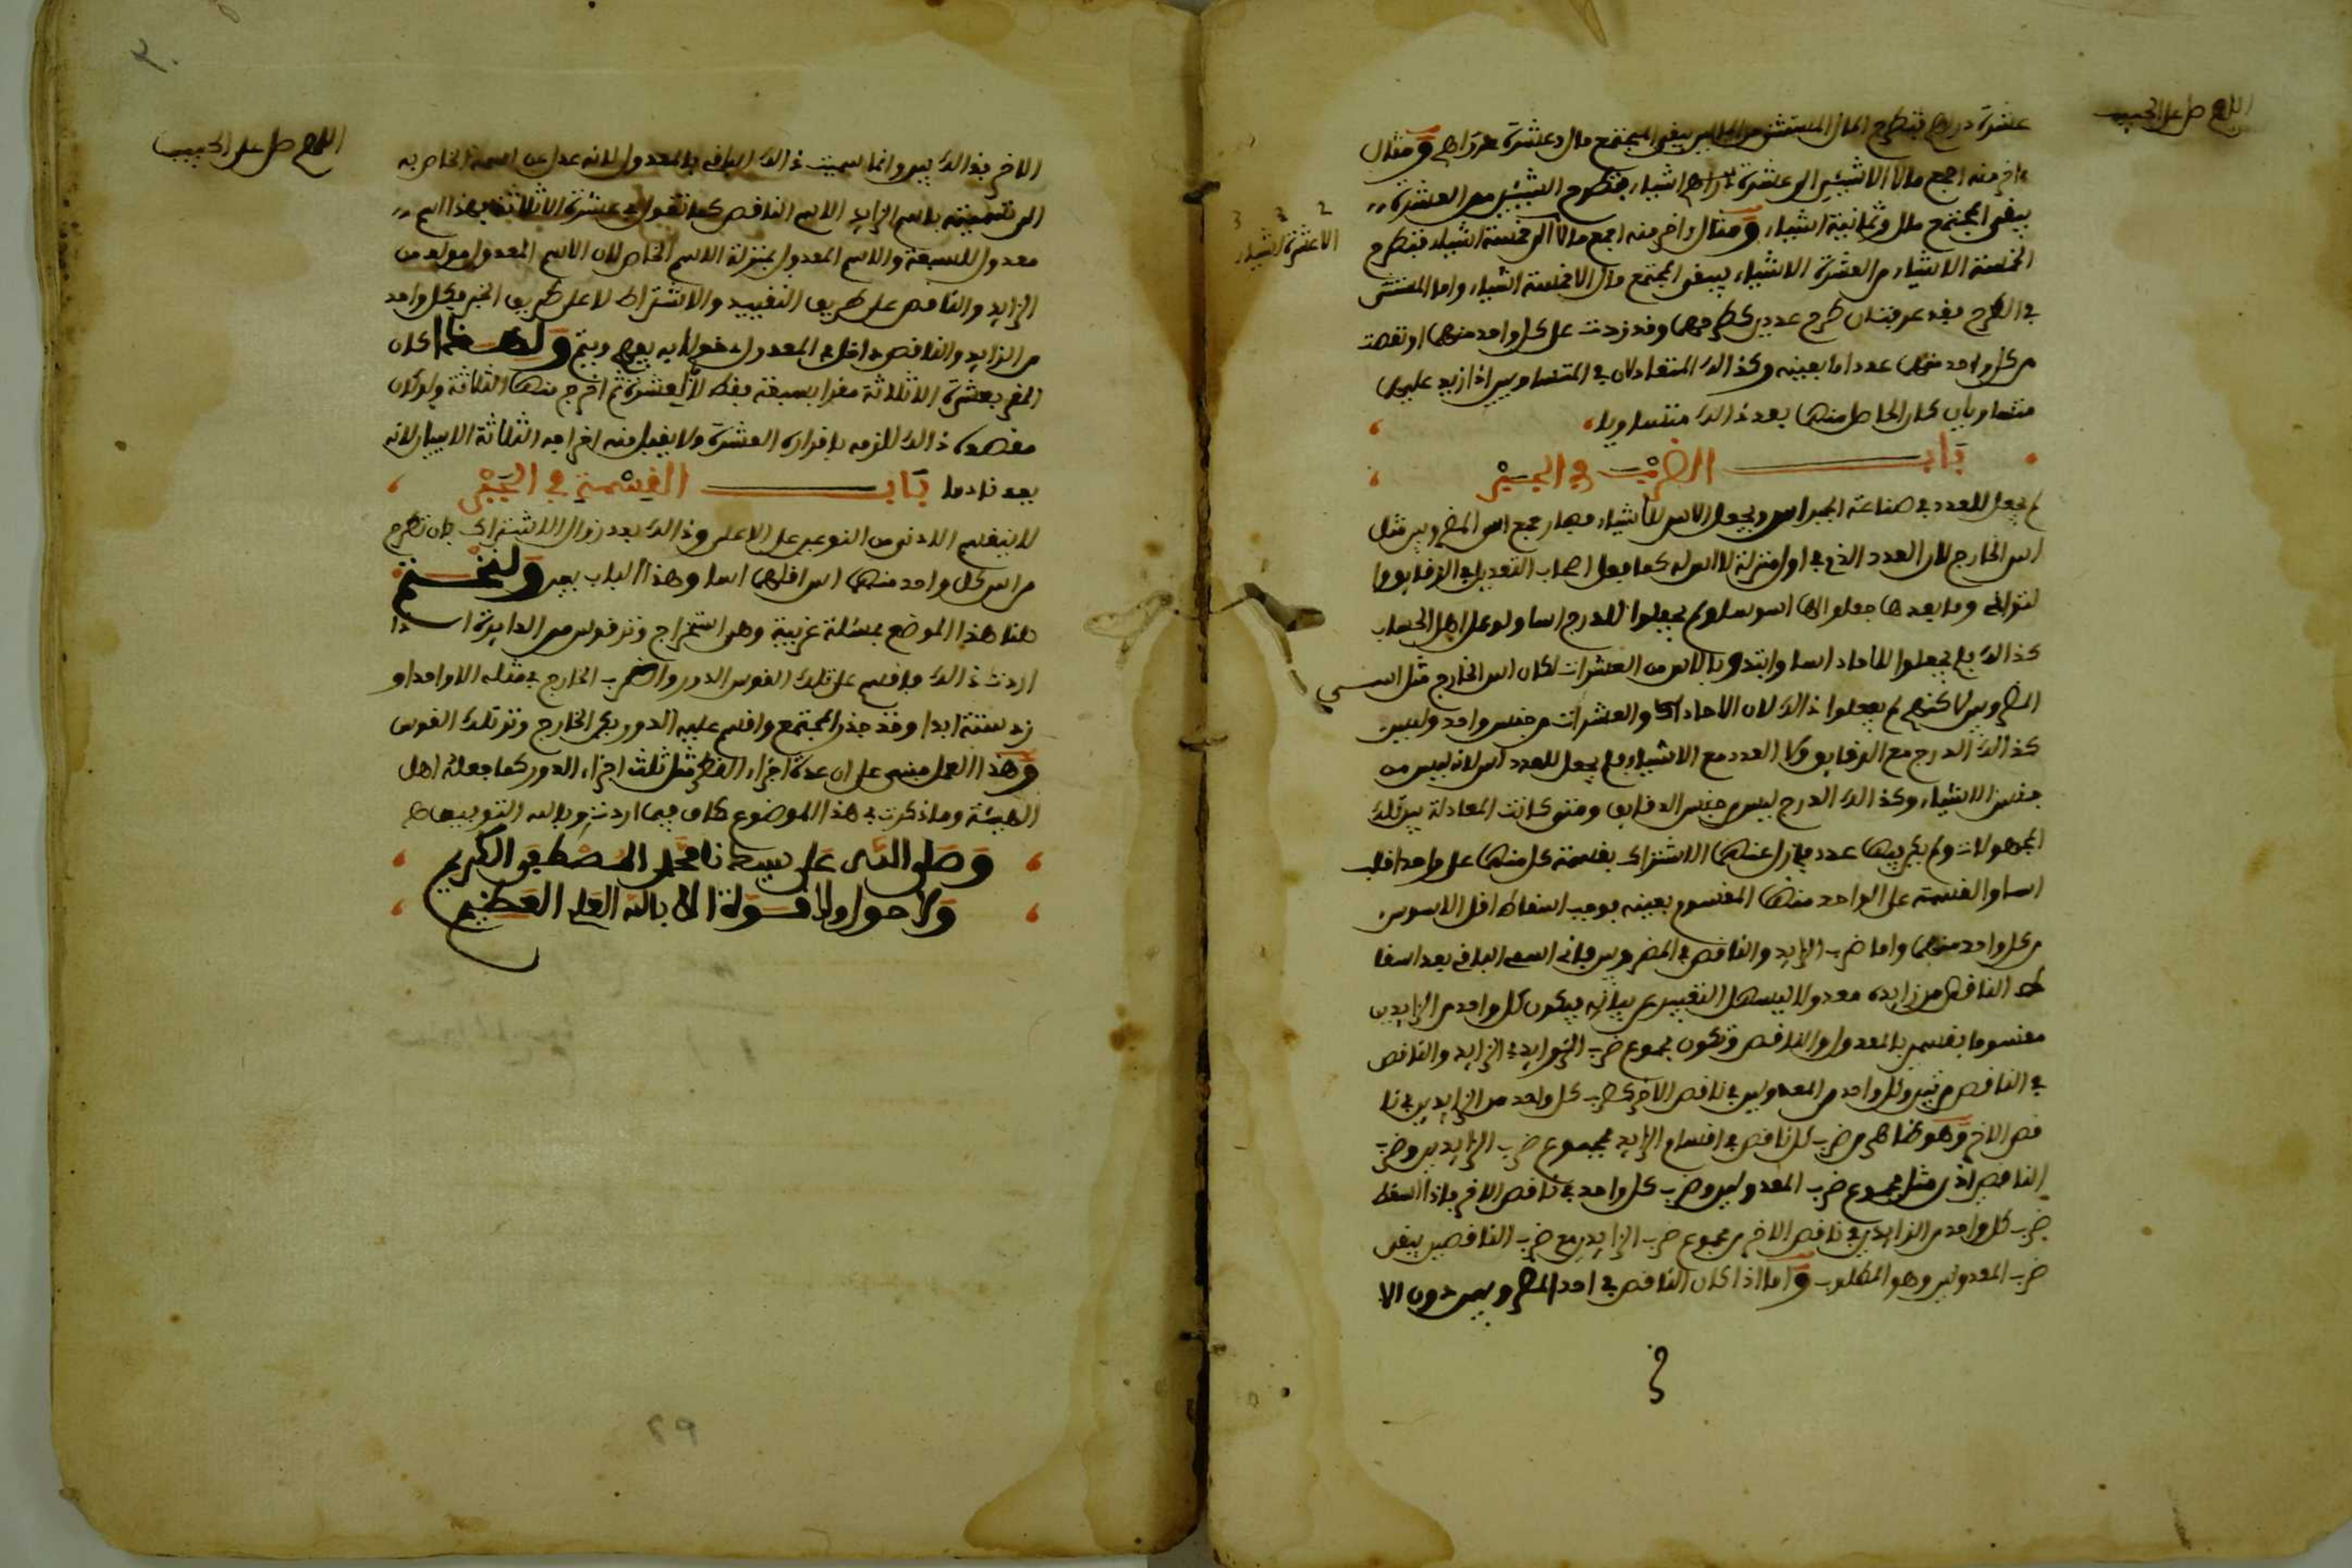 اللهم صل على الحبيب
عشرة دراهم فتطرح المال المستثنى من المالين يبقى المجتمع مال وعشرة دراهم ومثال
اخر منه اجمع مالا الا شيئين الى عشرة اشياء فتطرح الشيئين من العشرة
يبقى المجتمع مال وثمانية اشياء ومثال اخر منه اجمع مالا الى خمسة اشياء فتطرح
الا عشرة اشياء
الخمسة الاشياء من العشرة الاشياء يبقى المجتمع مال الا خمسة اشياء واما المستثنى
في الطرح فقد عرفت ان طرح عددين كطرحهما وقد زدت على كل واحد منهما او نقصت
من كل واحد منهما عددا ما بعينه وكذالك المتعادلان في المتساويين اذا زيد عليهما
متساويان كان الحاصل منهما بعد ذالك متساويا
باب الضرب في الجبر
لم يجعل للعدد في صناعة الجبر اس ويجعل الاس للاشياء فصار جمع اس المضروبين مثل
اس الخارج لان العدد الذي في اول منزلة لا اس له كما فعل اصحاب التعديل في الدقايق وما
لثوانى وما بعدها جعلوا لها اسوسا ولم يجعلوا للدرج اسا ولو عمل اهل الحساب
كذالك بل لم يجعلوا للاحاد اسا وابتدوا بالاس من العشرات لكان اس الخارج مثل اسي
المضروبين لاكنهم لم يفعلوا ذالك لان الاحاد والعشرات من جنس واحد وليس
كذالك الدرج مع الدقايق ولا العدد مع الاشياء فلم يجعل للعدد اس لانه ليس من
جنس الاشياء وكذالك الدرج ليس من جنس الدقايق ومتى كانت المعادلة بين تلك
المجهولات ولم يكن فيها عدد فازل عنها الاشتراك بقسمة كل منها على واحد اقلها
اسا والقسمة على الواحد منها المقسوم بعينه يوجب اسقاط اقل الاسوس
من كل واحد منهما واما ضرب الزايد والناقص في المضروبين فاني اسمي الباقي بعد اسقا
ط الناقص من زايده معدولا ليسهل التعبير عن بيانه فيكون كل واحد من الزايدين
مقسوما بقسمين بالمعدول والناقص وتكون مجموع ضرب الزوايد في الزايد والناقص
في الناقص مرتين وكل واحد من المعدولين في ناقص الاخر كضرب كل واحد من الزايدين في نا
قص الاخر وهو ظاهر من ضرب كل ناقص في اقسام الزايد فمجموع ضرب الزايدين وضرب
الناقصين اذن مثل مجموع ضرب المعدولين وضرب كل واحد في ناقص الاخر فاذا اسقط
ضرب كل واحد من الزايدين في ناقص الاخر من مجموع ضرب الزايدين مع ضرب الناقصين يبقى
ضرب المعدولين وهو المطلوب واما اذا كان الناقص في احد المضروبين دون الا
اللهم صل على الحبيب
الاخر فذالك بين وانما سميت ذالك الباقي بالمعدول لانه عدل عن اسمه الخاص به
الى تسميته باسم الزايد الاسم الناقص كما تقول في عشرة الا ثلاثة فهذا اسم
معدول للسبعة والاسم المعدول بمنزلة الاسم الخاص لان الاسم المعدول مولد من
الزايد والناقص على طريق التقييد والاشتراط لا على طريق الخبر فكل واحد
من الزايد والناقص داخل في المعدول دخولا به يفهم ويتم ولهذا كان
المقر بعشرة الا ثلاثة مقرا بسبعة فقط لا بالعشرة ثم اخرج منها الثلاثة ولو كان
مقصده ذالك للزمه باقراره العشرة ولا يقبل منه اخراجه الثلاثة الا ببيان لانه
يعد نادما باب القسمة في الجبر
لا ينقسم الادنى من النوعين على الاعلى وذالك بعد زوال الاشتراك بان تطرح
من اس كل واحد منهما اس اقلهما اسا وهذا الباب بين ولنختم
هنا هذا الموضع بمسئلة غريبة وهو استخراج وتر قوس من الدايرة اذا
اردت ذالك فاقسم على تلك القوس الدور واضرب الخارج في مثله الا واحد او
زد ستة ابدا وخذ جذر المجتمع واقسم عليه الدور يكن الخارج وتر تلك القوس
وهذا العمل مبني على ان عدة اجزاء القطر مثل ثلث اجزاء الدور كما جعله اهل
الهيئة وما ذكرت في هذا الموضوع كاف فيما اردت وبالله التوفيق
وصلى الله على سيدنا محمد المصطفى الكريم
ولا حول ولا قوة الا بالله العلي العظيم